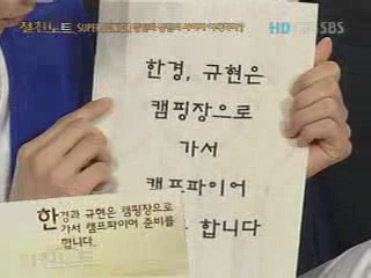 SUPER
HD SBS
한경, 규현은
캠핑장으로
가서
캠프파이어
합니다
한경과 규현은 캠핑장으로
가서 캠프파이어 준비를
합니다.